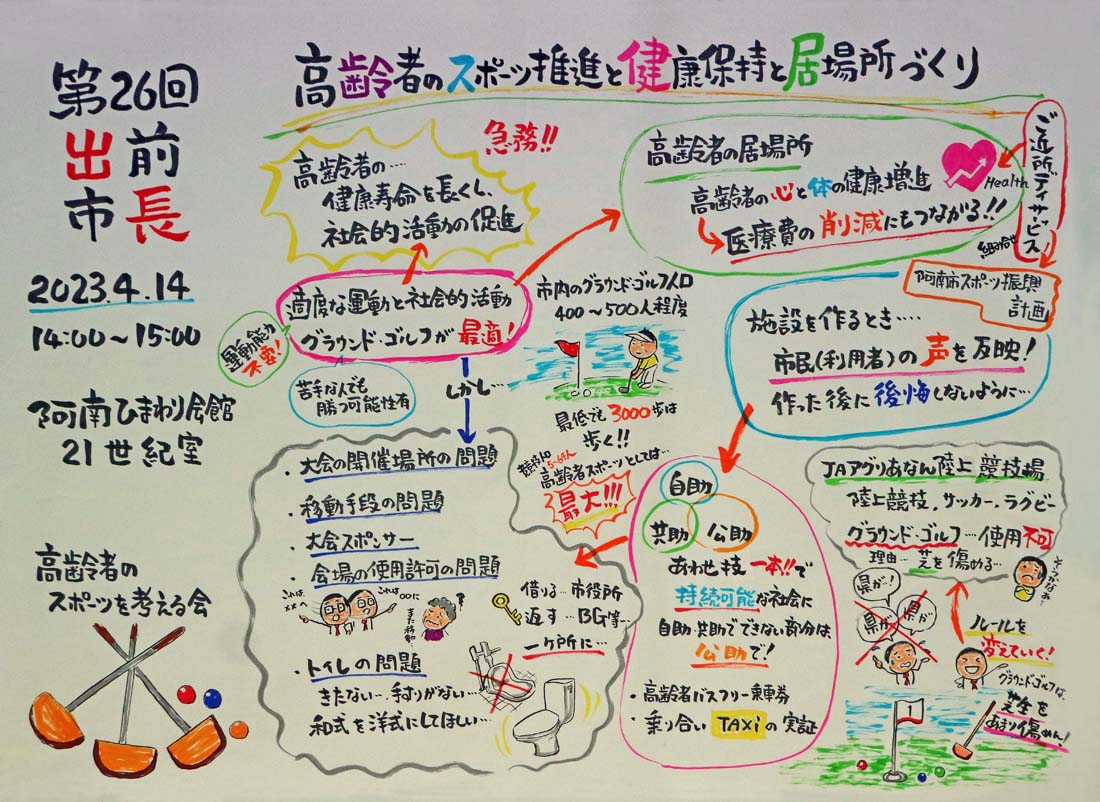 第26回
出前
市長
2023.4.14
14:00〜15:00
阿南ひまわり会館
21世紀室
高齢者の
スポーツを考える会
高齢者のスポーツ推進と健康保持と居場所づくり
急務!!
高齢者の…
健康寿命を長くし、
社会的活動の促進
適度な運動と社会的活動
グラウンド・ゴルフが最適!
運動能力
不要!
苦手な人でも
勝つ可能性有
しかし…
市内のグラウンド・ゴルフ人口
400〜500人程度
最低でも3000歩は
歩く!!
競技人口
5〜6千人
高齢者スポーツとしては…
最大!!!
高齢者の居場所
高齢者の心と体の健康増進
医療費の削減にもつながる!!
Health
ご近所デイサービス
組み合わせ
阿南市スポーツ振興
計画
施設を作るとき….
市民(利用者)の声を反映!
作った後に後悔しないように…
・大会の開催場所の問題
・移動手段の問題
・大会スポンサー
・会場の使用許可の問題
これは
××へ
これは〇〇に
また移動…
?
借りる…市役所
返す…BG等…
一ヶ所に…
・トイレの問題
きたない…、手すりがない…
和式を洋式にしてほしい…
自助
共助
公助
あわせ技一本!!で
持続可能な社会に
自助・共助でできない部分は
公助で!
・高齢者バスフリー乗車券
・乗り合いTAXiの実証
JAアグリあなん陸上競技場
陸上競技、サッカー、ラグビー
グラウンド・ゴルフ…使用不可
理由…芝を傷める…
そうかなぁ…
県が!
県が
県が
ルールを
変えていく!
グラウンド・ゴルフは、
芝生を
あまり傷めん!
1